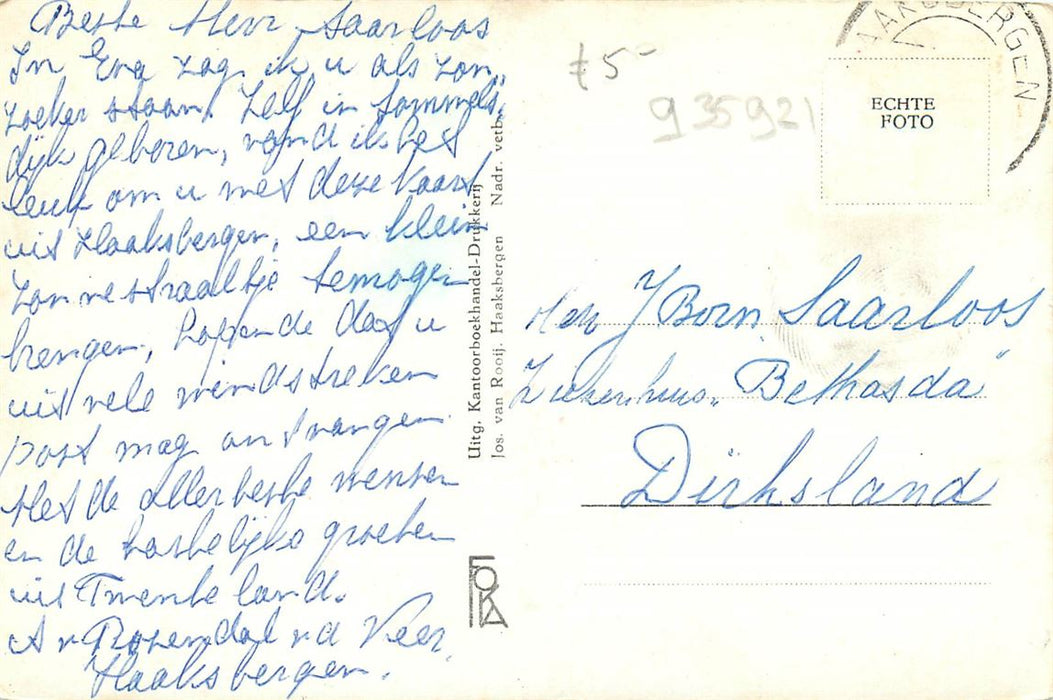 Beste Heer Saarloos
In Eva zag ik u als zon„
zoeker staan. Zelf in Sommels„
dijk geboren, vond ik het
leuk om u met deze kaart
uit Haaksbergen, een klein
zonnestraaltje te mogen
brengen, hopende dat u
uit vele windstreken
post mag ontvangen
Met de allerbeste wensen
en de hartelijke groeten
uit Twenteland.
A v Rozendal v d Veer
Haaksbergen.
Uitg. Kantoorboekhandel-Drukkerij
Jos. van Rooij. Haaksbergen Nadr. verb.
FOKA
f 5-
935921
HAAKSBERGEN
ECHTE
FOTO
den J Born Saarloos
Ziekenhuis „Bethesda"
Dirksland